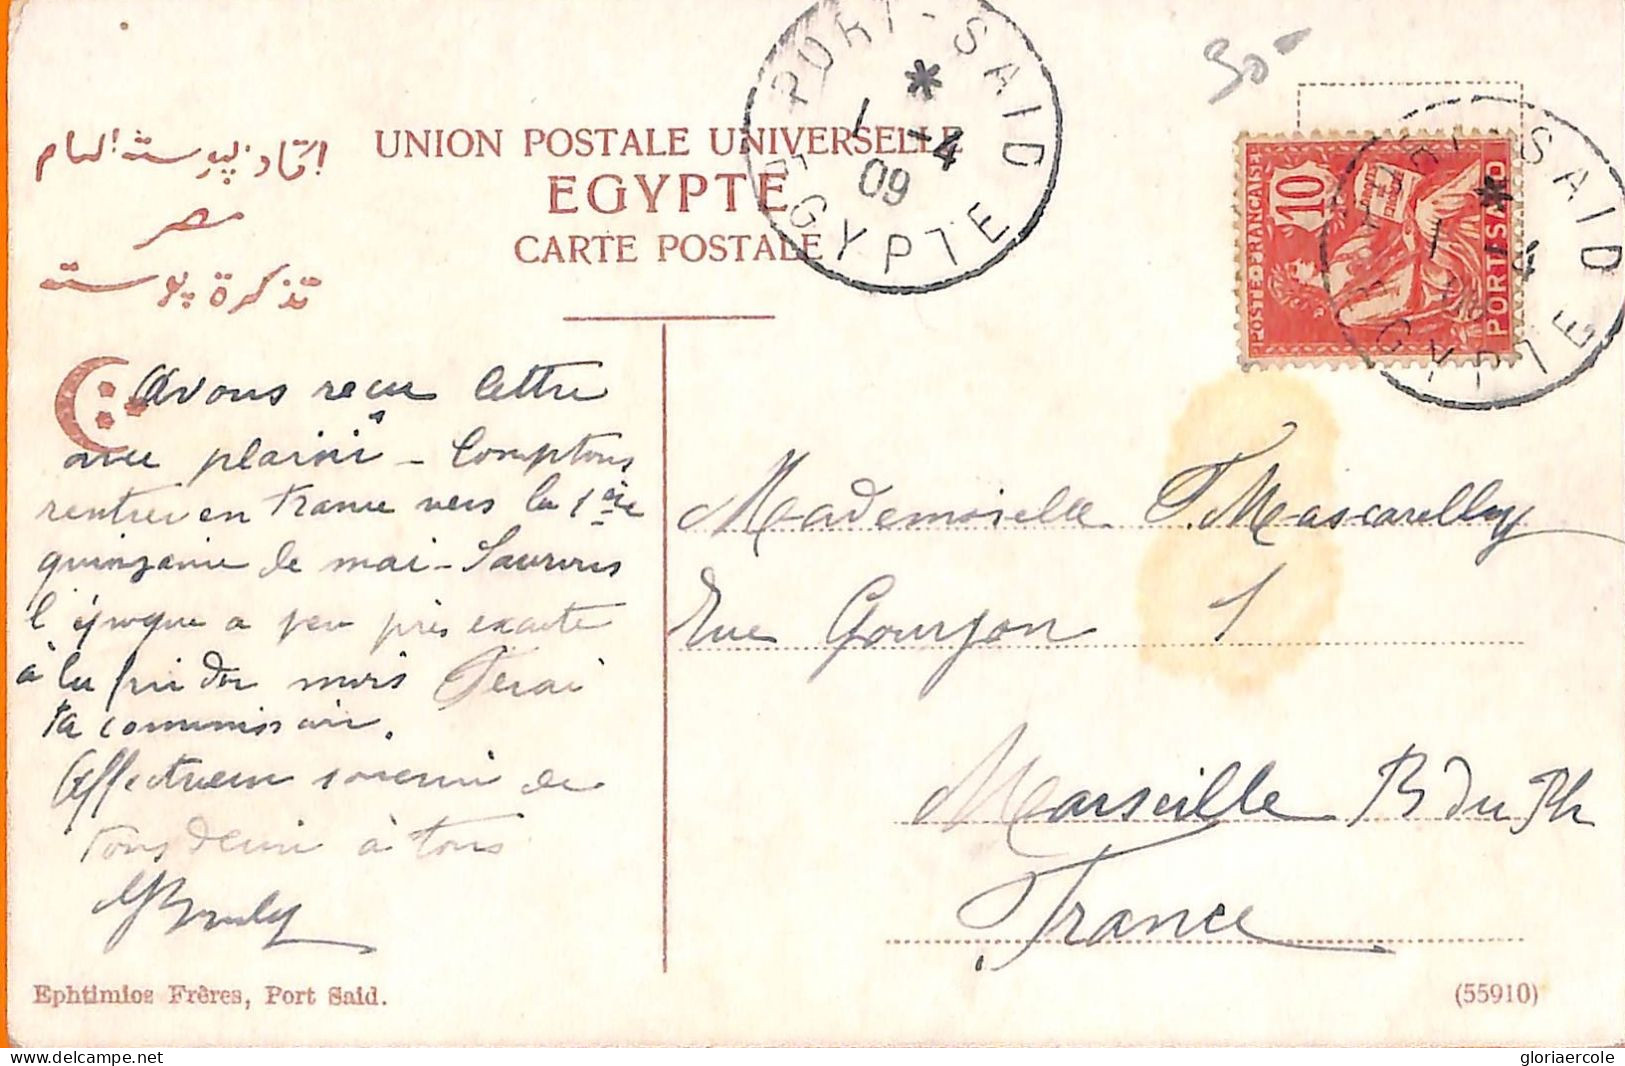 PORT-SAID
1 -4
09
EGYPTE
30
UNION POSTALE UNIVERSELLE
EGYPTE
CARTE POSTALE
اتحاد البوسته العام
مصر
تذكرة بوسته
10
POSTE FRANÇAISE
PORT SAÏD
SAID
Avons reçu lettre
avec plaisir – Comptons
rentrer en France vers la 1ère
quinzaine de mai – Saurons
l'époque a peu près exacte
à la fin du mois Ferai
ta commission.
Affectueux souvenir de
tous deux à tous
Mademoiselle T. Mascarelly
Rue Goujon 1
Marseille B du Rh
France
Ephtimios Frères, Port Said.
(55910)
gloriaercole